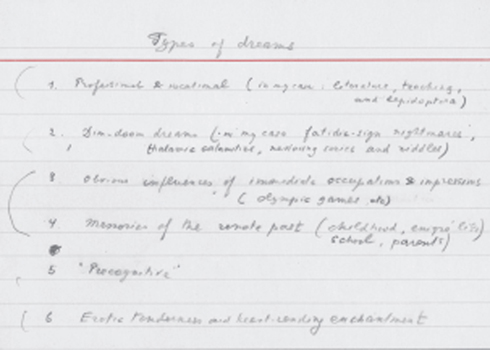 Types of dreams
1. Professional & vocational (in my case: literature, teaching,
and lepidoptera)
2. Dim-doom dreams (in my case fatidic-sign nightmares,
thalamic calamities, menacing series and riddles)
3 obvious influences of immediate occupations & impressions
(Olympic games etc)
4 Memories of the remote past (childhood, emigré life,
school, parents)
5 "Precognitive"
6 Erotic tenderness and heart-rending enchantment